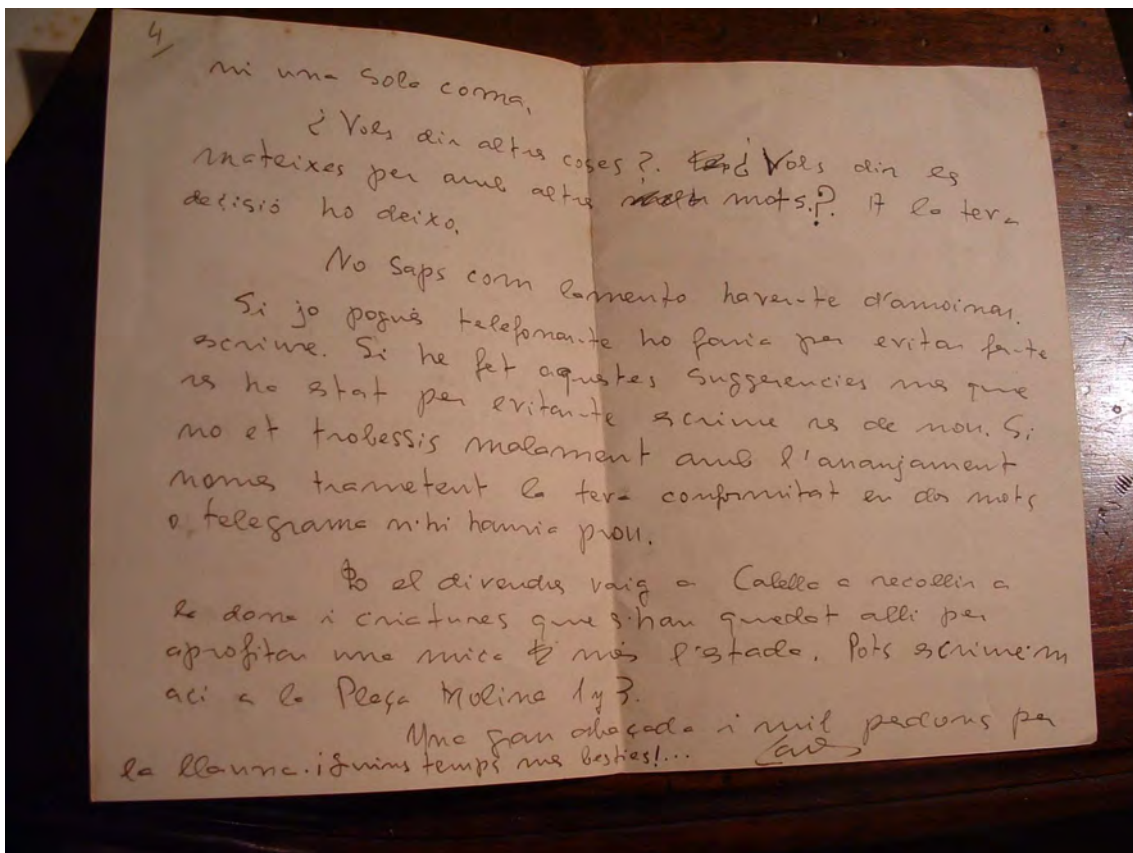 4
ni una sola coma.
¿ Vols dir altres coses?. ¿ Vols dir es
mateixes per amb altres mots.? A la teva
decisió ho deixo.
No saps com lamento haver-te d'amoinar.
Si jo pogués telefonar-te ho faria per evitar fer-te
escriure. Si he fet aquestes suggerencies mes que
res ho estat per evitar-te escriure res de nou. Si
no et trobessis malament amb l'arranjament
nomes trametent la teva conformitat en dos mots
o telegrama n'hi hauria prou.
el divendres vaig a Calella a recollir a
la dona i criatures que s'han quedat alli per
aprofitar una mica més l'estada. Pots escriure'm
aci a la Plaça Molina 1 y 3.
Una gran abraçada i mil perdons per
la llauna. i quins temps mes besties!...